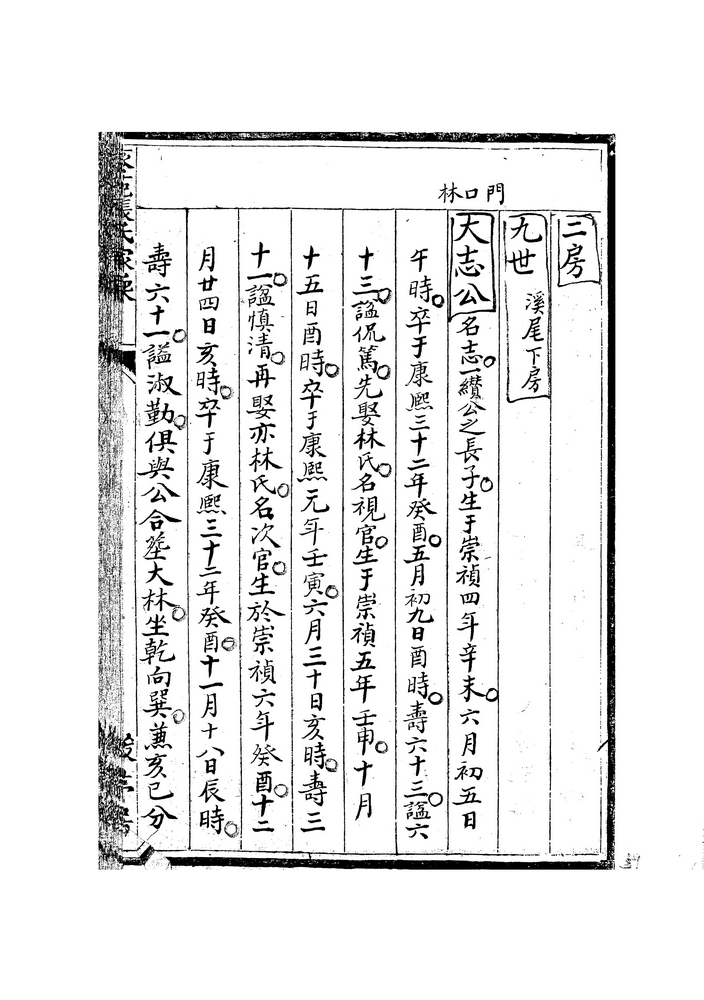 林口門
三房
九世 溪尾下房
大志公名志一纘公之長子生于崇禎四年辛未六月初五日
午時卒于康熙三十二年癸酉五月初九日酉時壽六十三諡六
十三諡侃篤先娶林氏名視官生于崇禎五年壬申十月
十五日酉時卒于康熙元年壬寅六月三十日亥時壽三
十一諡慎清再娶亦林氏名次官生於崇禎六年癸酉十二
月廿四日亥時卒于康熙三十二年癸酉十一月十八日辰時
壽六十一謚淑勤俱與公合塟大林坐乾向巽兼亥巳分
張氏家